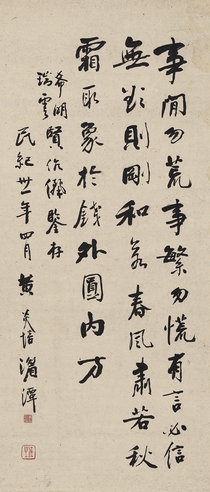 事閒勿荒事繁勿慌有言必信
無欲則剛和若春風肅若秋
霜取象於錢外圓內方
希明
瑞雲
賢伉儷鑒存
民紀卅一年四月 黃炎培